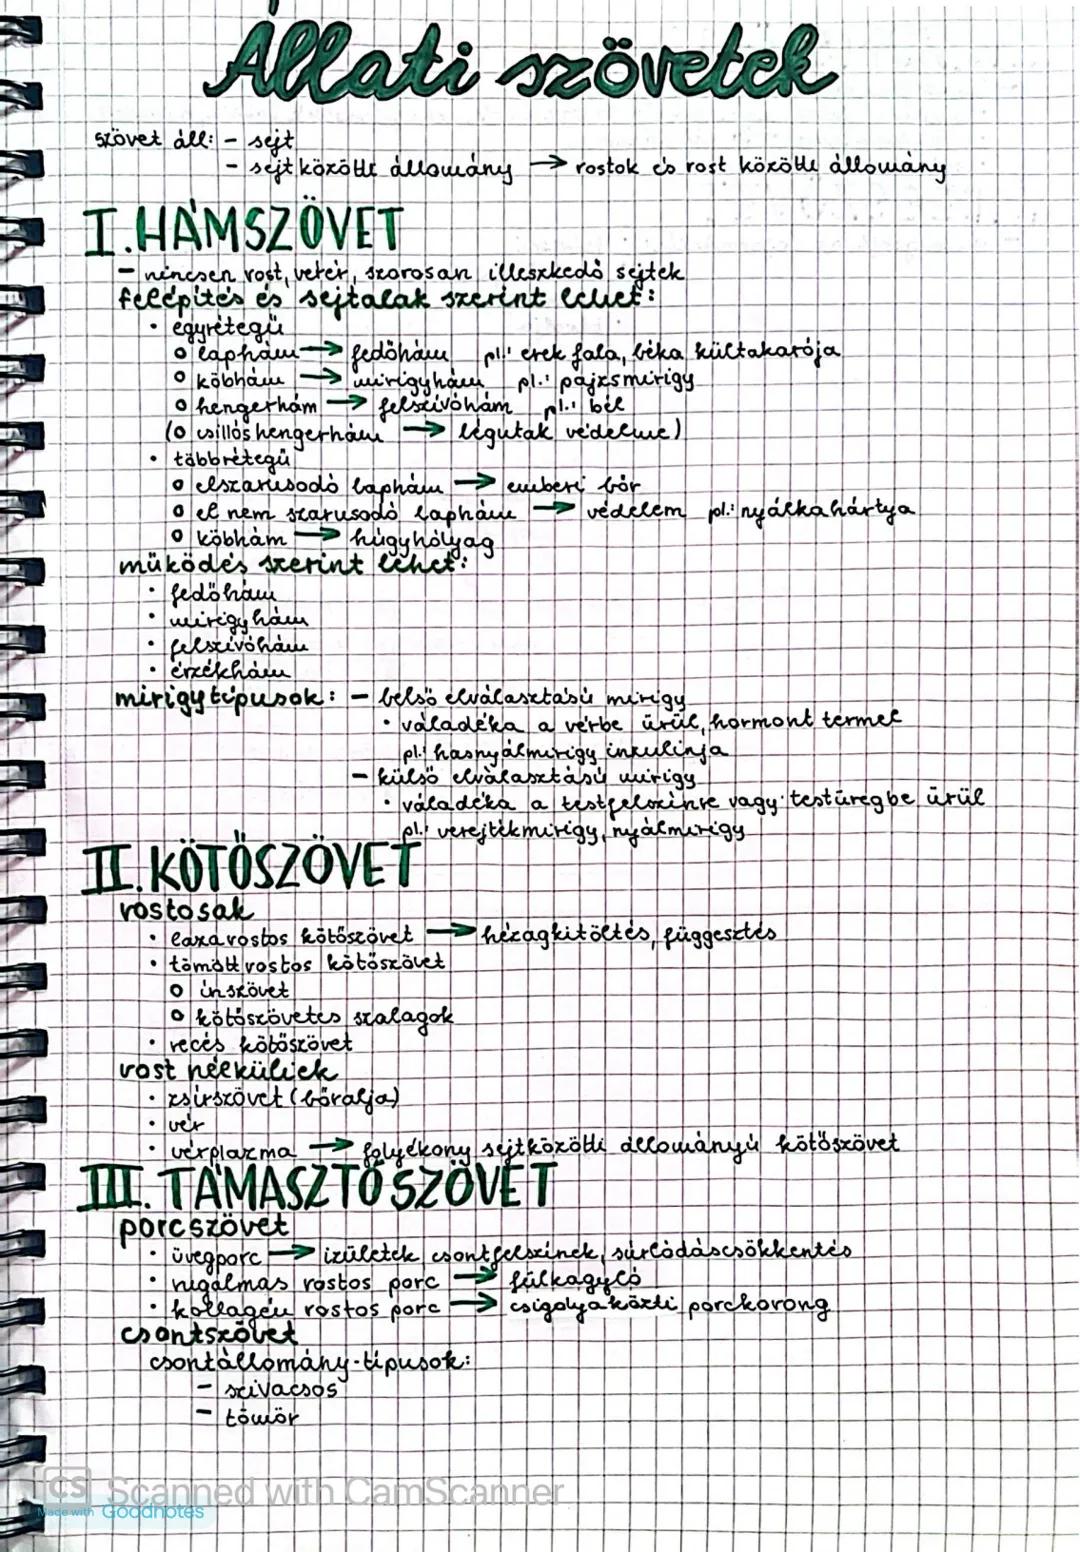 Állati szövetek
szövet áll: - sejt
- sejt közötti állomány → rostok és rost közötti állomány
I. HÁMSZÖVET
- nincsen rost, vérér, szorosan illeszkedő sejtek
felépítés és sejtalak szerint lehet:
• egyrétegű
o laphám → fedőhám pl.: erek fala, béka kültakarója
o köbhám → mirigyhám pl.: pajzsmirigy
o hengerhám → felszívóhám pl.: bél
(o csillós hengerhám → légutak védelme)
• többrétegű
o elszarusodó laphám → emberi bőr
o el nem szarusodó laphám → védelem pl.: nyálkahártya
o köbhám → húgyhólyag
működés szerint lehet:
• fedőhám
• mirigyhám
• felszívóhám
• érzékhám
mirigytípusok: - belső elválasztású mirigy
• váladéka a vérbe ürül, hormont termel
pl.: hasnyálmirigy inzulinja
- külső elválasztású mirigy
• váladéka a testfelszínre vagy testüregbe ürül
pl.: verejtékmirigy, nyálmirigy
II. KÖTŐSZÖVET
rostosak
• laza rostos kötőszövet → hézagkitöltés, függesztés
• tömött rostos kötőszövet
o ínszövet
o kötőszövetes szalagok
• recés kötőszövet
rost nélküliek
• zsírszövet (bőralja)
• vér
• vérplazma → folyékony sejtközötti állományú kötőszövet
III. TÁMASZTÓSZÖVET
porcszövet
• üvegporc → ízületek, csontfelszínek, súrlódáscsökkentés
• rugalmas rostos porc → fülkagyló
• kollagén rostos porc → csigolyaközti porckorong
csontszövet
csontállomány-típusok:
- szivacsos
- tömör
CS Scanned with CamScanner
Made with Goodnotes